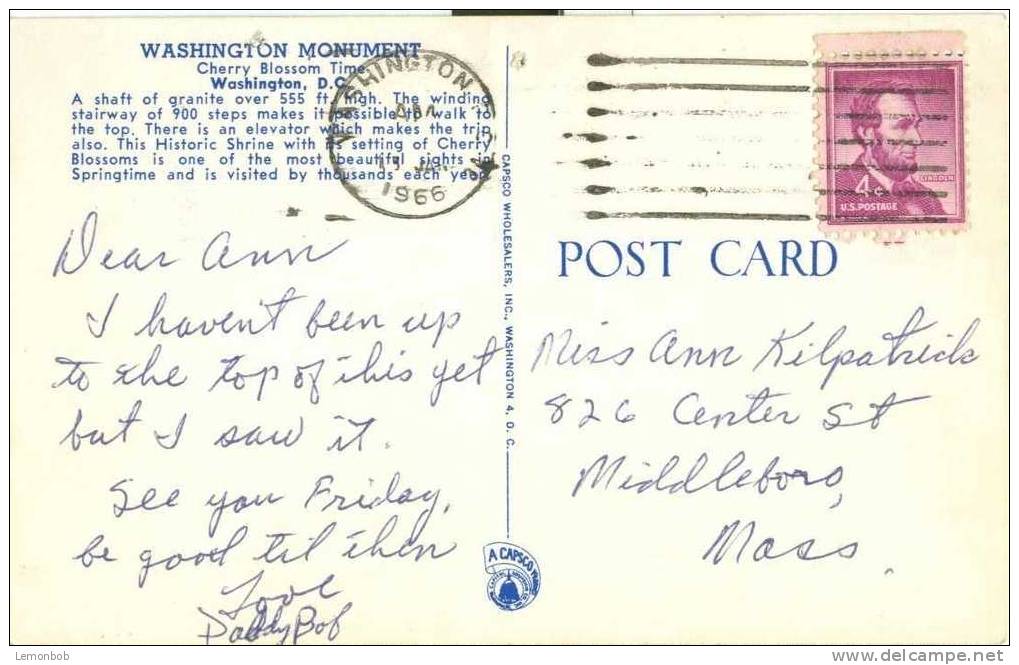 WASHINGTON MONUMENT
Cherry Blossom Time
Washington, D.C.
A shaft of granite over 555 ft. high. The winding
stairway of 900 steps makes it possible to walk to
the top. There is an elevator which makes the trip
also. This Historic Shrine with its setting of Cherry
Blossoms is one of the most beautiful sights in
Springtime and is visited by thousands each year.
WASHINGTON
AM
1966
Dear Ann
I haven't been up
to the top of this yet
but I saw it.
See you Friday,
be good til then
Love
Daddy Bob
CAPSCO WHOLESALERS, INC., WASHINGTON 4, D. C.
A CAPSCO
LINCOLN
4¢
U.S. POSTAGE
POST CARD
Miss Ann Kilpatrick
826 Center St
Middleboro,
Mass.
Lemonbob
delcampe.net